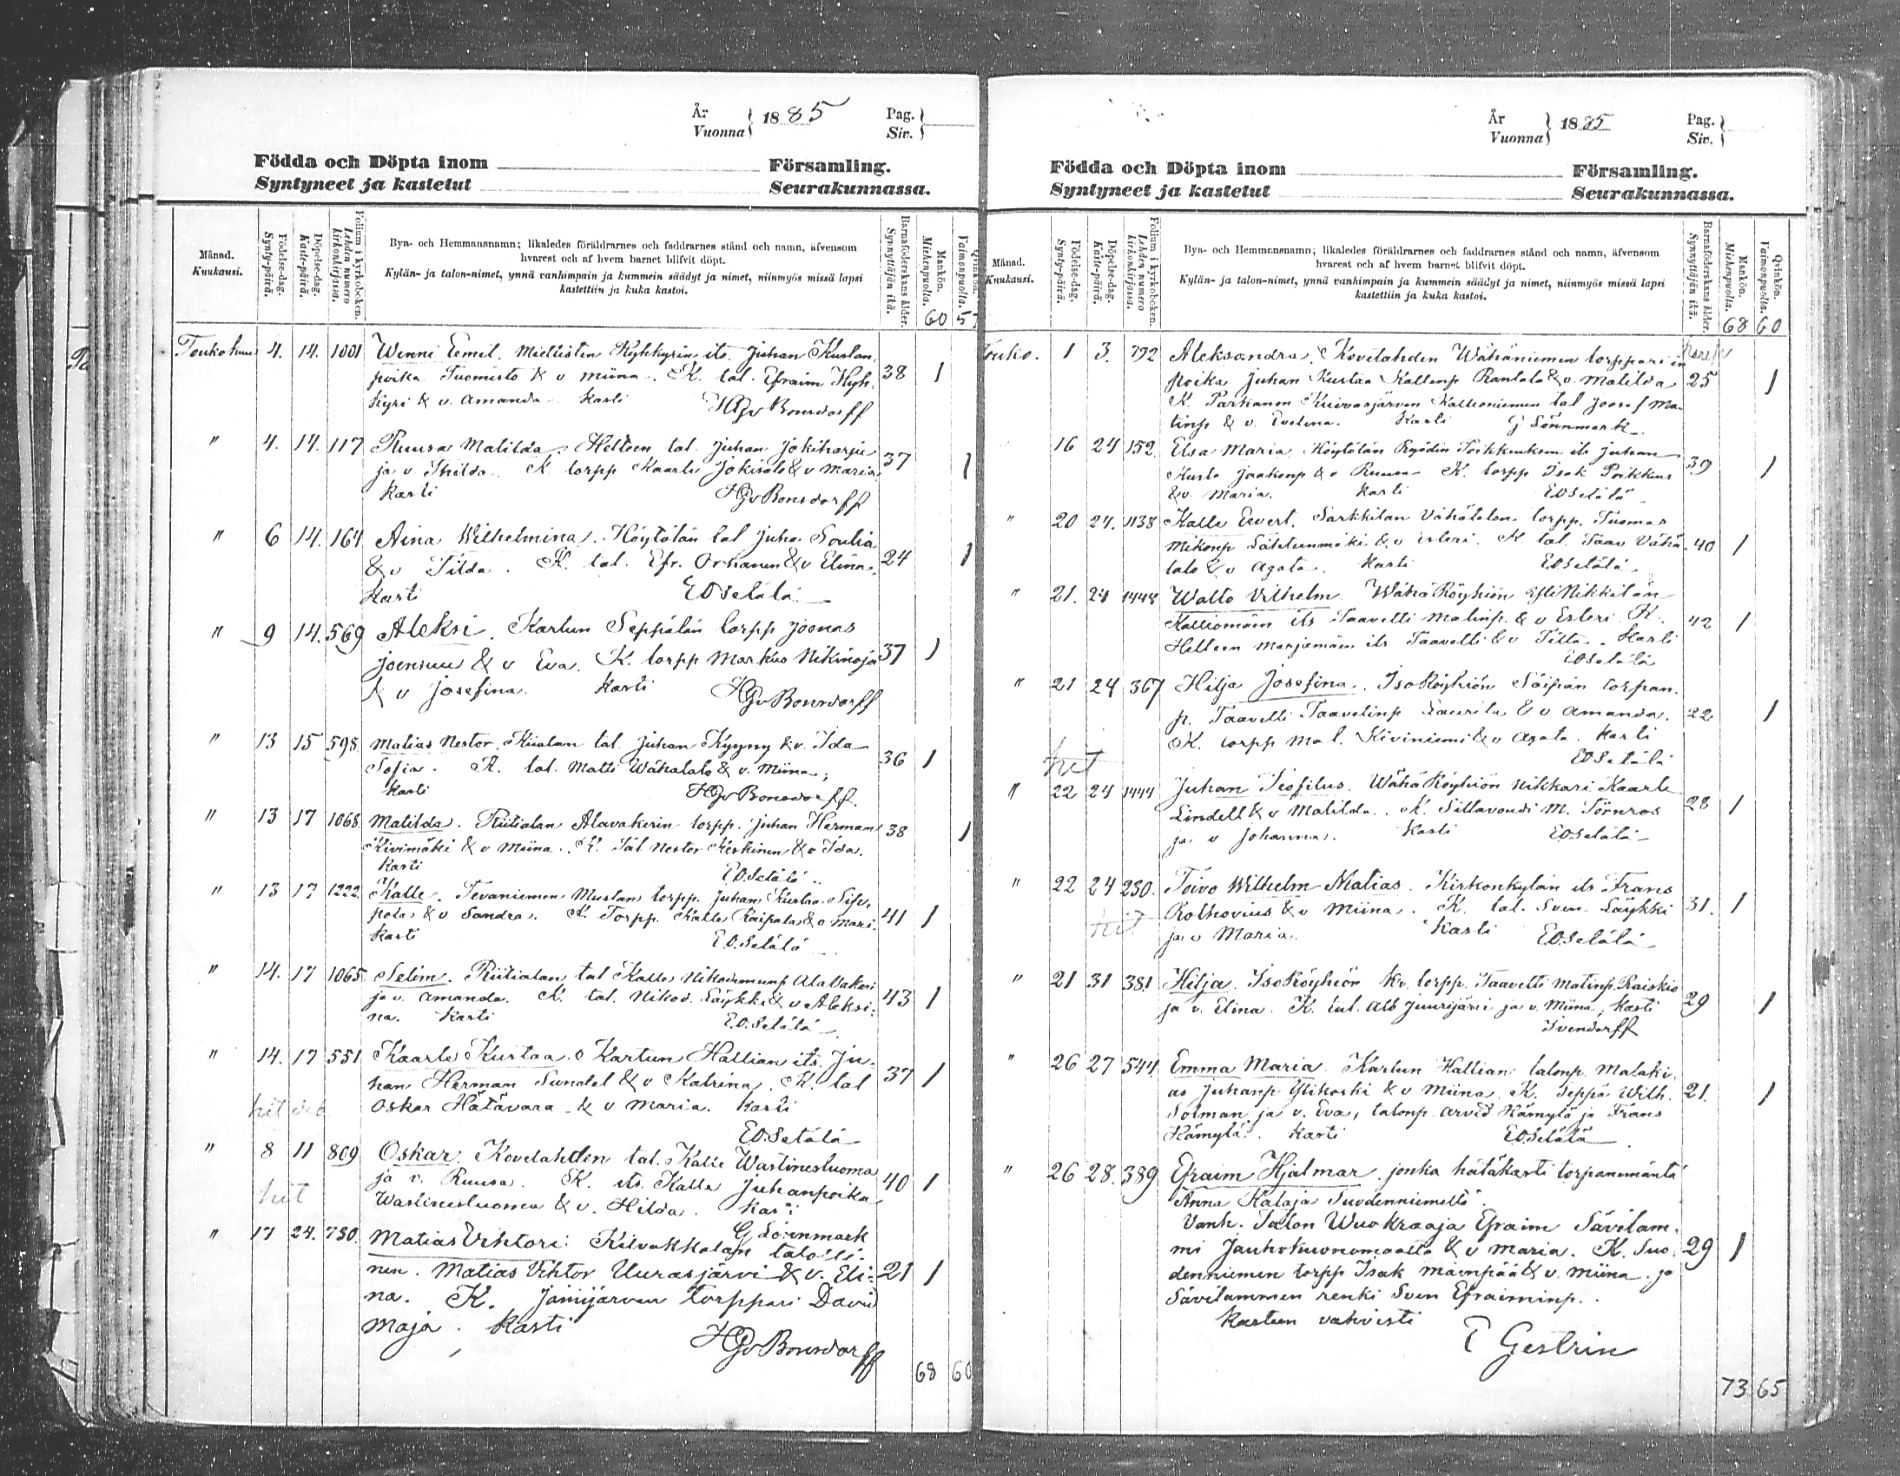 År
Vuonna } 1885 Pag.
Siv. }
Födda och Döpta inom Församling.
Syntyneet ja kastetut Seurakunnassa.
Månad.
Kuukausi.
Födelse-dag.
Synty-päivä.
Döpelse-dag.
Kaste-päivä.
Folium i kyrkoboken.
Lehden numero kirkonkirjassa.
Bya- och Hemmansnamn; likaledes föräldrarnes och faddrarnes stånd och namn, äfvensom
hvarest och af hvem barnet blifvit döpt.
Kylän- ja talon-nimet, ynnä vanhimpain ja kummein säädyt ja nimet, niinmyös missä lapsi
kastettiin ja kuka kastoi.
Barnaföderskans ålder.
Synnyttäjän ikä.
Mankön.
Miehenpuolta.
Qvinkön.
Vaimonpuolta.
60 57
Toukokuu 4. 14. 1001 Wenni Eemil. Miettisten Kyhkyrin its. Juhan Kustan
poika Tuomisto & v Miina. K. tal. Efraim Kyh- 38 1
kyri & v. Amanda. Kasti HGvBonsdorff
" 4. 14. 117 Ruusa Matilda. Heitoen tal. Juhan Jokiharju
ja v. Thilda. K torpp Kaarle Jokisalo & v Maria 37 1
Kasti HGvBonsdorff
" 6 14. 164 Aina Wilhelmina. Höytölän tal Juho
& v Tilda. K. tal. Efr. & v Elina. 24 1
Kasti EOSetälä
" 9 14. 569 Aleksi. Kartun Seppälän torpp Joonas
Joensuu & v Eva. K. torpp Markus Nikinoja 37 1
& v Josefina. Kasti HGvBonsdorff
" 13 15 598 Matias Nestor. tal. Juhan Kyyny & v. Ida
Sofia. K. tal. Matti Wähätalo & v. Miina; 36 1
Kasti HGvBonsdorff
" 13 17 1068 Matilda. Riitialan Alavakerin torpp. Juhan Herman
Kivimäki & v Miina. K. Tal Nestor Keskinen & v Ida. 38 1
Kasti E.O.Setälä
" 13 17 1222. Kalle. Tevaniemen Mustan torpp. Juhan Kustaa
& v Sandra. K. Torpp. Kalle Raipala & v Mari. 41 1
Kasti E.O.Setälä
" 14. 17 1065 Selim. Riitialan tal Kalle Nikodemunp Ala Vakeri
ja v. Amanda. K. tal. Nikod. Läykki & v Aleksi- 43 1
na. Kasti E.O.Setälä
" 14. 17 551 Kaarle Kustaa. Kartun Hallian its. Ju-
han Herman Sundel & v Katrina. K. tal 37 1
Oskar Hätävara & v Maria. Kasti
E.O.Setälä
" 8 11 809 Oskar. Kovelahden tal. Kalle Wastinesluoma
ja v. Ruusa. K. its. Kalle Juhanpoika 40 1
Wastinesluoma & v. Hilda. Kasti
G Lönnmark
" 17 24. 730. Matias Vihtori. Kilvakkalan taloli-
nen. Matias Vihtor Uurasjärvi & v. Eli- 21 1
na. K. Jämijärven torppari David
Maja. Kasti
HGvBonsdorff
68 60
År
Vuonna } 1885 Pag.
Siv. }
Födda och Döpta inom Församling.
Syntyneet ja kastetut Seurakunnassa.
Månad.
Kuukausi.
Födelse-dag.
Synty-päivä.
Döpelse-dag.
Kaste-päivä.
Folium i kyrkoboken.
Lehden numero kirkonkirjassa.
Bya- och Hemmansnamn; likaledes föräldrarnes och faddrarnes stånd och namn, äfvensom
hvarest och af hvem barnet blifvit döpt.
Kylän- ja talon-nimet, ynnä vanhimpain ja kummein säädyt ja nimet, niinmyös missä lapsi
kastettiin ja kuka kastoi.
Barnaföderskans ålder.
Synnyttäjän ikä.
Mankön.
Miehenpuolta.
Qvinkön.
Vaimonpuolta.
68 60
Touko. 1 3. 792 Aleksandra. Kovelahden Wähäniemen torpparin
poika Juhan Kustaa Kallenp Rantala & v. Matilda 25 1
K. Parkanon Kuivasjärven Kallioniemen tal Joosef Ma-
tinp & v. Evelina. Kasti G Lönnmark
16 24 152. Elsa Maria. Höytölän Ryödin Poikkeuksen its Juhan
Kusto Jaakonp & v Ruusa. K. torpp Isak Poikkeus 39 1
& v. Maria. Kasti EOSetälä
" 20 24. 1138 Kalle Evert. Sarkkilan Vähätalon torpp. Tuomas
Mikonp Lähteenmäki & v Esteri. K tal. Taav Vähä- 40 1
talo & v Agata. Kasti EOSetälä
" 21. 24 1448 Walto Vilhelm. Wähä Röyhiön Yli Nikkilän
Kalliomäen its Taavetti Matinp. & v Esteri. K. 42 1
Heitoen Marjamäen its Taavetti & v Tilta. Kasti
EOSetälä
" 21 24 367 Hilja Josefina. IsoRöyhiön torpan-
p. Taavetti Taavetinp Laurila & v Amanda. 22 1
K. torpp Mat. Kiviniemi & v Agata. Kasti
EOSetälä
" 22 24 1444 Juhan Teofilus. Wähä Röyhiön nikkari Kaarle
Lindell & v Matilda. K. Siltavouti M. Törnroos 28 1
ja v Johanna. Kasti EOSetälä
" 22 24 230. Toivo Wilhelm Matias. Kirkonkylän its Frans
Rothovius & v Miina. K. tal. Sven Läykki 31. 1
ja v Maria. Kasti EOSetälä
" 21 31 381 Hilja. IsoRöyhiön Kv. torpp. Taavetti Matinp. Raiskio
ja v. Elina. K. tal. Alb Juurijärvi ja v. Miina, Kasti 29 1
" 26 27 544 Emma Maria. Kartun Hallian talonp. Malaki-
as Juhanp Ylikoski & v Miina. K. Seppä Wilh. 21. 1
Solman ja v. Eva, talonp. Arvid Hämylä ja Frans
Hämylä. Kasti EOSetälä
" 26 28. 389 Efraim Hjalmar. jonka hätäkasti torpanemäntä
Anna Kataja Suodenniemeltä.
Vanh. Talon Wuokraaja Efraim Sävilam-
mi Jauhokuonomaalta & v Maria. K. Suo- 29 1
denniemen torpp Isak Mäenpää & v. Miina. ja
Sävilammen renki Sven Efraiminp.
Kasteen vahvisti
E Gestrin
73 65